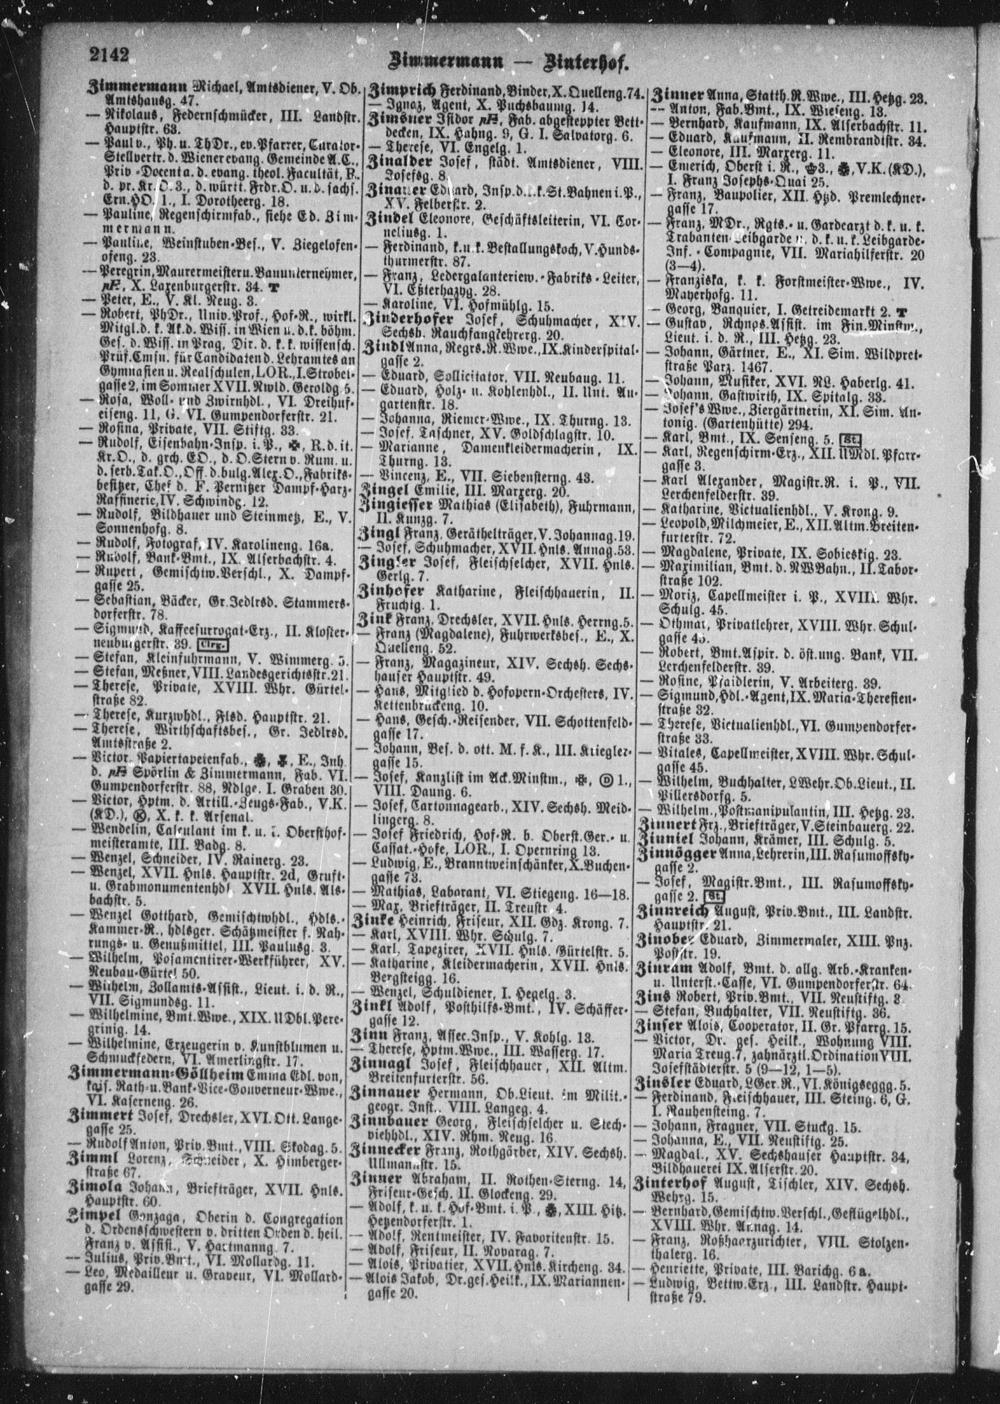 2142
Zimmermann — Zinterhof.
Zimmermann Michael, Amtsdiener, V. Ob.
Amtshausg. 47.
— Nikolaus, Federnschmücker, III. Landstr.
Hauptstr. 63.
— Paul v., Ph. u. ThDr., ev. Pfarrer, Curator-
Stellvertr. d. Wiener evang. Gemeinde A. C.,
Priv.-Docent a. d. evang. theol. Facultät, P.
d. pr. Kr.O. 3., d. württ. Frdr.O. u. d. sachs.
Ern.HO. 1., I. Dorotheerg. 18.
— Pauline, Regenschirmfab., siehe Ed. Zim-
mermann.
— Pauline, Weinstuben-Bes., V. Ziegelofen-
ofeng. 23.
— Peregrin, Maurermeister u. Bauunternehmer,
X. Laxenburgerstr. 34.
— Peter, E., V. Kl. Neug. 3.
— Robert, PhDr., Univ.Prof., Hof-R., wirkl.
Mitgl. d. k. Ak. d. Wiss. in Wien u. d. k. böhm.
Ges. d. Wiss. in Prag, Dir. d. k. k. wissensch.
Prüf.Cmsn. für Candidaten d. Lehramtes an
Gymnasien u. Realschulen, LOR., I. Strobel-
gasse 2, im Sommer XVII. Nwld. Geroldg. 5.
— Rosa, Woll- und Zwirnhdl., VI. Dreihuf-
eiseng. 11, G. VI. Gumpendorferstr. 21.
— Rosina, Private, VII. Stiftg. 33.
— Rudolf, Eisenbahn-Insp. i. P., R. d. it.
Kr.O., d. grch. EO., d. O. Stern v. Rum. u.
d. serb. Tak.O., Off. d. bulg. Alex.O., Fabriks-
besitzer, Chef d. F. Pernitzer Dampf-Harz-
Raffinerie, IV. Schwindg. 12.
— Rudolf, Bildhauer und Steinmetz, E., V.
Sonnenhofg. 8.
— Rudolf, Fotograf, IV. Karolineng. 16a.
— Rudolf, Bank-Bmt., IX. Alserbachstr. 4.
— Rupert, Gemischtw.Verschl., X. Dampf-
gasse 25.
— Sebastian, Bäcker, Gr. Jedlrsd. Stammers-
dorferstr. 78.
— Sigmund, Kaffeesurrogat-Erz., II. Kloster-
neuburgerstr. 39. Clrg.
— Stefan, Kleinfuhrmann, V. Wimmerg. 5.
— Stefan, Meßner, VIII. Landesgerichtsstr. 21.
— Therese, Private, XVIII. Whr. Gürtel-
straße 82.
— Therese, Kurzwhdl., Flsd. Hauptstr. 21.
— Therese, Wirthschaftsbes., Gr. Jedlrsd.
Amtsstraße 2.
— Victor, Papiertapetenfab., E., Inh.
d. Spörlin & Zimmermann, Fab. VI.
Gumpendorferstr. 88, Ndlge. I. Graben 30.
— Victor, Hptm. d. Artill.-Zeugs-Fab., V.K.
(KD.), X. k. k. Arsenal.
— Wendelin, Calculant im k. u. k. Obersthof-
meisteramte, III. Badg. 8.
— Wenzel, Schneider, IV. Rainerg. 23.
— Wenzel, XVII. Hnls. Hauptstr. 2d, Gruft-
u. Grabmonumentenhdl. XVII. Hnls. Als-
bachstr. 5.
— Wenzel Gotthard, Gemischtwhdl., Hdls.-
Kammer-R., hdlsger. Schätzmeister f. Nah-
rungs- u. Genußmittel, III. Paulusg. 3.
— Wilhelm, Posamentirer-Werkführer, XV.
Neubau-Gürtel 50.
— Wilhelm, Zollamts-Assist., Lieut. i. d. R.,
VII. Sigmundsg. 11.
— Wilhelmine, Bmt.Wwe., XIX. UDbl. Pere-
grinig. 14.
— Wilhelmine, Erzeugerin v. Kunstblumen u.
Schmuckfedern, VI. Amerlingstr. 17.
Zimmermann-Göllheim Emma Edl. von,
kais. Rath- u. Bank-Vice-Gouverneur-Wwe.,
VI. Kaserneng. 26.
Zimmert Josef, Drechsler, XVI. Ott. Lange-
gasse 25.
— Rudolf Anton, Priv.Bmt., VIII. Skodag. 5.
Zimml Lorenz, Schneider, X. Himberger-
straße 67.
Zimola Johann, Briefträger, XVII. Hnls.
Hauptstr. 60.
Zimpel Gonzaga, Oberin d. Congregation
d. Ordensschwestern v. dritten Orden d. heil.
Franz v. Assisi., V. Hartmanng. 7.
— Julius, Priv.Bmt., VI. Mollardg. 11.
— Leo, Medailleur u. Graveur, VI. Mollard-
gasse 29.
Zimprich Ferdinand, Binder, X. Quelleng. 74.
— Ignaz, Agent, X. Puchsbaumg. 14.
Zimsner Isidor, Fab. abgesteppter Bett-
decken, IX. Hahng. 9, G. I. Salvatorg. 6.
— Therese, VI. Engelg. 1.
Zinalder Josef, städt. Amtsdiener, VIII.
Josefsg. 8.
Eduard, Insp. d. k. k. St.Bahnen i. P.,
XV. Felberstr. 2.
Zindel Eleonore, Geschäftsleiterin, VI. Cor-
neliusg. 1.
— Ferdinand, k. u. k. Bestallungskoch, V. Hunds-
thurmerstr. 87.
— Franz, Ledergalanteriew.-Fabriks-Leiter,
VI. Eßterhazyg. 28.
— Karoline, VI. Hofmühlg. 15.
Zinderhofer Josef, Schuhmacher, XIV.
Sechsh. Rauchfangkehrerg. 20.
Zindl Anna, Regrs.R.Wwe., IX. Kinderspital-
gasse 2.
— Eduard, Sollicitator, VII. Neubaug. 11.
— Eduard, Holz- u. Kohlenhdl., II. Unt. Au-
gartenstr. 18.
— Johanna, Riemer-Wwe., IX. Thurng. 13.
— Josef, Taschner, XV. Goldschlagstr. 10.
— Marianne, Damenkleidermacherin, IX.
Thurng. 13.
— Vincenz, E., VII. Siebensterng. 43.
Zingel Emilie, III. Marxerg. 20.
Zingiesser Mathias (Elisabeth), Fuhrmann,
II. Kunzg. 7.
Zingl Franz, Geräthelträger, V. Johannag. 19.
— Josef, Schuhmacher, XVII. Hnls. Annag. 53.
Zingler Josef, Fleischselcher, XVII. Hnls.
Gerlg. 7.
Zinhofer Katharine, Fleischhauerin, II.
Fruchtg. 1.
Zink Franz, Drechsler, XVII. Hnls. Herrng. 5.
— Franz (Magdalene), Fuhrwerksbes., E., X.
Quelleng. 52.
— Franz, Magazineur, XIV. Sechsh. Sechs-
hauser Hauptstr. 49.
— Hans, Mitglied d. Hofopern-Orchesters, IV.
Kettenbrückeng. 10.
— Hans, Gesch.-Reisender, VII. Schottenfeld-
gasse 17.
— Johann, Bes. d. ott. M. f. K., III. Kriegler-
gasse 15.
— Josef, Kanzlist im Ack.Minstm., 1.,
VIII. Daung. 6.
— Josef, Cartonnagearb., XIV. Sechsh. Meid-
lingerg. 8.
— Josef Friedrich, Hof-R. b. Oberst.Ger.- u.
Cassat.-Hofe, LOR., I. Opernring 13.
— Ludwig, E., Branntweinschänker, X. Buchen-
gasse 73.
— Mathias, Laborant, VI. Stiegeng. 16—18.
— Max, Briefträger, II. Treustr. 4.
Zinke Heinrich, Friseur, XII. Gdz. Krong. 7.
— Karl, XVIII. Whr. Schulg. 7.
— Karl, Tapezirer, XVII. Hnls. Gürtelstr. 5.
— Katharine, Kleidermacherin, XVII. Hnls.
Bergsteigg. 16.
— Wenzel, Schuldiener, I. Hegelg. 3.
Zinkl Adolf, Posthilfs-Bmt., IV. Schäffer-
gasse 12.
Zinn Franz, Assec.Insp., V. Kohlg. 13.
— Therese, Hptm.Wwe., III. Wasserg. 17.
Zinnagl Josef, Fleischhauer, XII. Altm.
Breitenfurterstr. 56.
Zinnauer Hermann, Ob.Lieut. im Milit.-
geogr. Inst., VIII. Langeg. 4.
Zinnbauer Georg, Fleischselcher u. Stech-
viehhdl., XIV. Rhm. Neug. 16.
Zinnecker Franz, Rothgärber, XIV. Sechsh.
Ullmannstr. 15.
Zinner Abraham, II. Rothen-Sterng. 14,
Friseur-Gesch. II. Glockeng. 29.
— Adolf, k. u. k. Hof-Bmt. i. P., XIII. Hitz.
Hetzendorferstr. 1.
— Adolf, Rentmeister, IV. Favoritenstr. 15.
— Adolf, Friseur, II. Novarag. 7.
— Alois, Privatier, XVII. Hnls. Kircheng. 34.
— Alois Jakob, Dr. ges. Heilk., IX. Mariannen-
gasse 20.
Zinner Anna, Statth.R.Wwe., III. Hetzg. 23.
— Anton, Fab.Bmt., IX. Wieseng. 13.
— Bernhard, Kaufmann, IX. Alserbachstr. 11.
— Eduard, Kaufmann, II. Rembrandtstr. 34.
— Eleonore, III. Marxerg. 11.
— Emerich, Oberst i. R., 3., V.K. (KD.),
I. Franz Josephs-Quai 25.
— Franz, Baupolier, XII. Hpd. Premlechner-
gasse 17.
— Franz, MDr., Rgts.- u. Gardearzt d. k. u. k.
Trabanten-Leibgarde u. d. k. u. k. Leibgarde-
Inf.-Compagnie, VII. Mariahilferstr. 20
(3—4).
— Franziska, k. k. Forstmeister-Wwe., IV.
Mayerhofg. 11.
— Georg, Banquier, I. Getreidemarkt 2.
— Gustav, Rchngs.Assist. im Fin.Minstm.,
Lieut. i. d. R., III. Hetzg. 23.
— Johann, Gärtner, E., XI. Sim. Wildpret-
straße Parz. 1467.
— Johann, Musiker, XVI. NL. Haberlg. 41.
— Johann, Gastwirth, IX. Spitalg. 33.
— Josef's Wwe., Ziergärtnerin, XI. Sim. An-
tonig. (Gartenhütte) 294.
— Karl, Bmt., IX. Senseng. 5. St.
— Karl, Regenschirm-Erz., XII. UMdl. Pfarr-
gasse 3.
— Karl Alexander, Magistr.R. i. P., VII.
Lerchenfelderstr. 39.
— Katharine, Victualienhdl., V. Krong. 9.
— Leopold, Milchmeier, E., XII. Altm. Breiten-
furterstr. 72.
— Magdalene, Private, IX. Sobieskig. 23.
— Maximilian, Bmt. d. NWBahn., II. Tabor-
straße 102.
— Moriz, Capellmeister i. P., XVIII. Whr.
Schulg. 45.
— Othmar, Privatlehrer, XVIII. Whr. Schul-
gasse 45.
— Robert, Bmt.Aspir. d. öst.ung. Bank, VII.
Lerchenfelderstr. 39.
— Rosine, Pfaidlerin, V. Arbeiterg. 39.
— Sigmund, Hdl.-Agent, IX. Maria-Theresien-
straße 32.
— Therese, Victualienhdl., VI. Gumpendorfer-
straße 33.
— Vitales, Capellmeister, XVIII. Whr. Schul-
gasse 45.
— Wilhelm, Buchhalter, LWehr.Ob.Lieut., II.
Pillersdorfg. 5.
— Wilhelm, Postmanipulantin, III. Hetzg. 23.
Zinnert Frz., Briefträger, V. Steinbauerg. 22.
Zinniel Johann, Krämer, III. Schulg. 5.
Zinnögger Anna, Lehrerin, III. Rasumoffsky-
gasse 2.
— Josef, Magistr.Bmt., III. Rasumoffsky-
gasse 2. St.
Zinnreich August, Priv.Bmt., III. Landstr.
Hauptstr. 21.
Zinober Eduard, Zimmermaler, XIII. Pnz.
Poststr. 19.
Zinram Adolf, Bmt. d. allg. Arb.-Kranken-
u. Unterst.-Casse, VI. Gumpendorferstr. 64.
Zins Robert, Priv.Bmt., VII. Neustiftg. 8.
— Stefan, Buchhalter, VII. Neustiftg. 36.
Zinser Alois, Cooperator, II. Gr. Pfarrg. 15.
— Victor, Dr. ges. Heilk., Wohnung VIII.
Maria Treug. 7, zahnärztl. Ordination VIII.
Josefstädterstr. 5 (9—12, 1—5).
Zinsler Eduard, LGer.R., VI. Königseggg. 5.
— Ferdinand, Fleischhauer, III. Steing. 6, G.
I. Rauhensteing. 7.
— Johann, Fragner, VII. Stuckg. 15.
— Johanna, E., VII. Neustiftg. 25.
— Magdal., XV. Sechshauser Hauptstr. 34,
Bildhauerei IX. Alserstr. 20.
Zinterhof August, Tischler, XIV. Sechsh.
Wehrg. 15.
— Bernhard, Gemischtw.Verschl., Geflügelhdl.,
XVIII. Whr. Annag. 14.
— Franz, Roßhaarzurichter, VIII. Stolzen-
thalerg. 16.
— Henriette, Private, III. Barichg. 6a.
— Ludwig, Bettw.Erz., III. Landstr. Haupt-
straße 79.